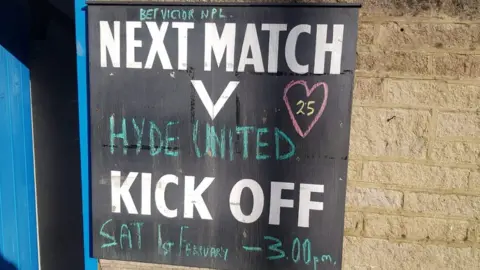 BETVICTOR NPL.
NEXT MATCH
V
25
HYDE UNITED
KICK OFF
SAT 1st FEBRUARY - 3.00pm.